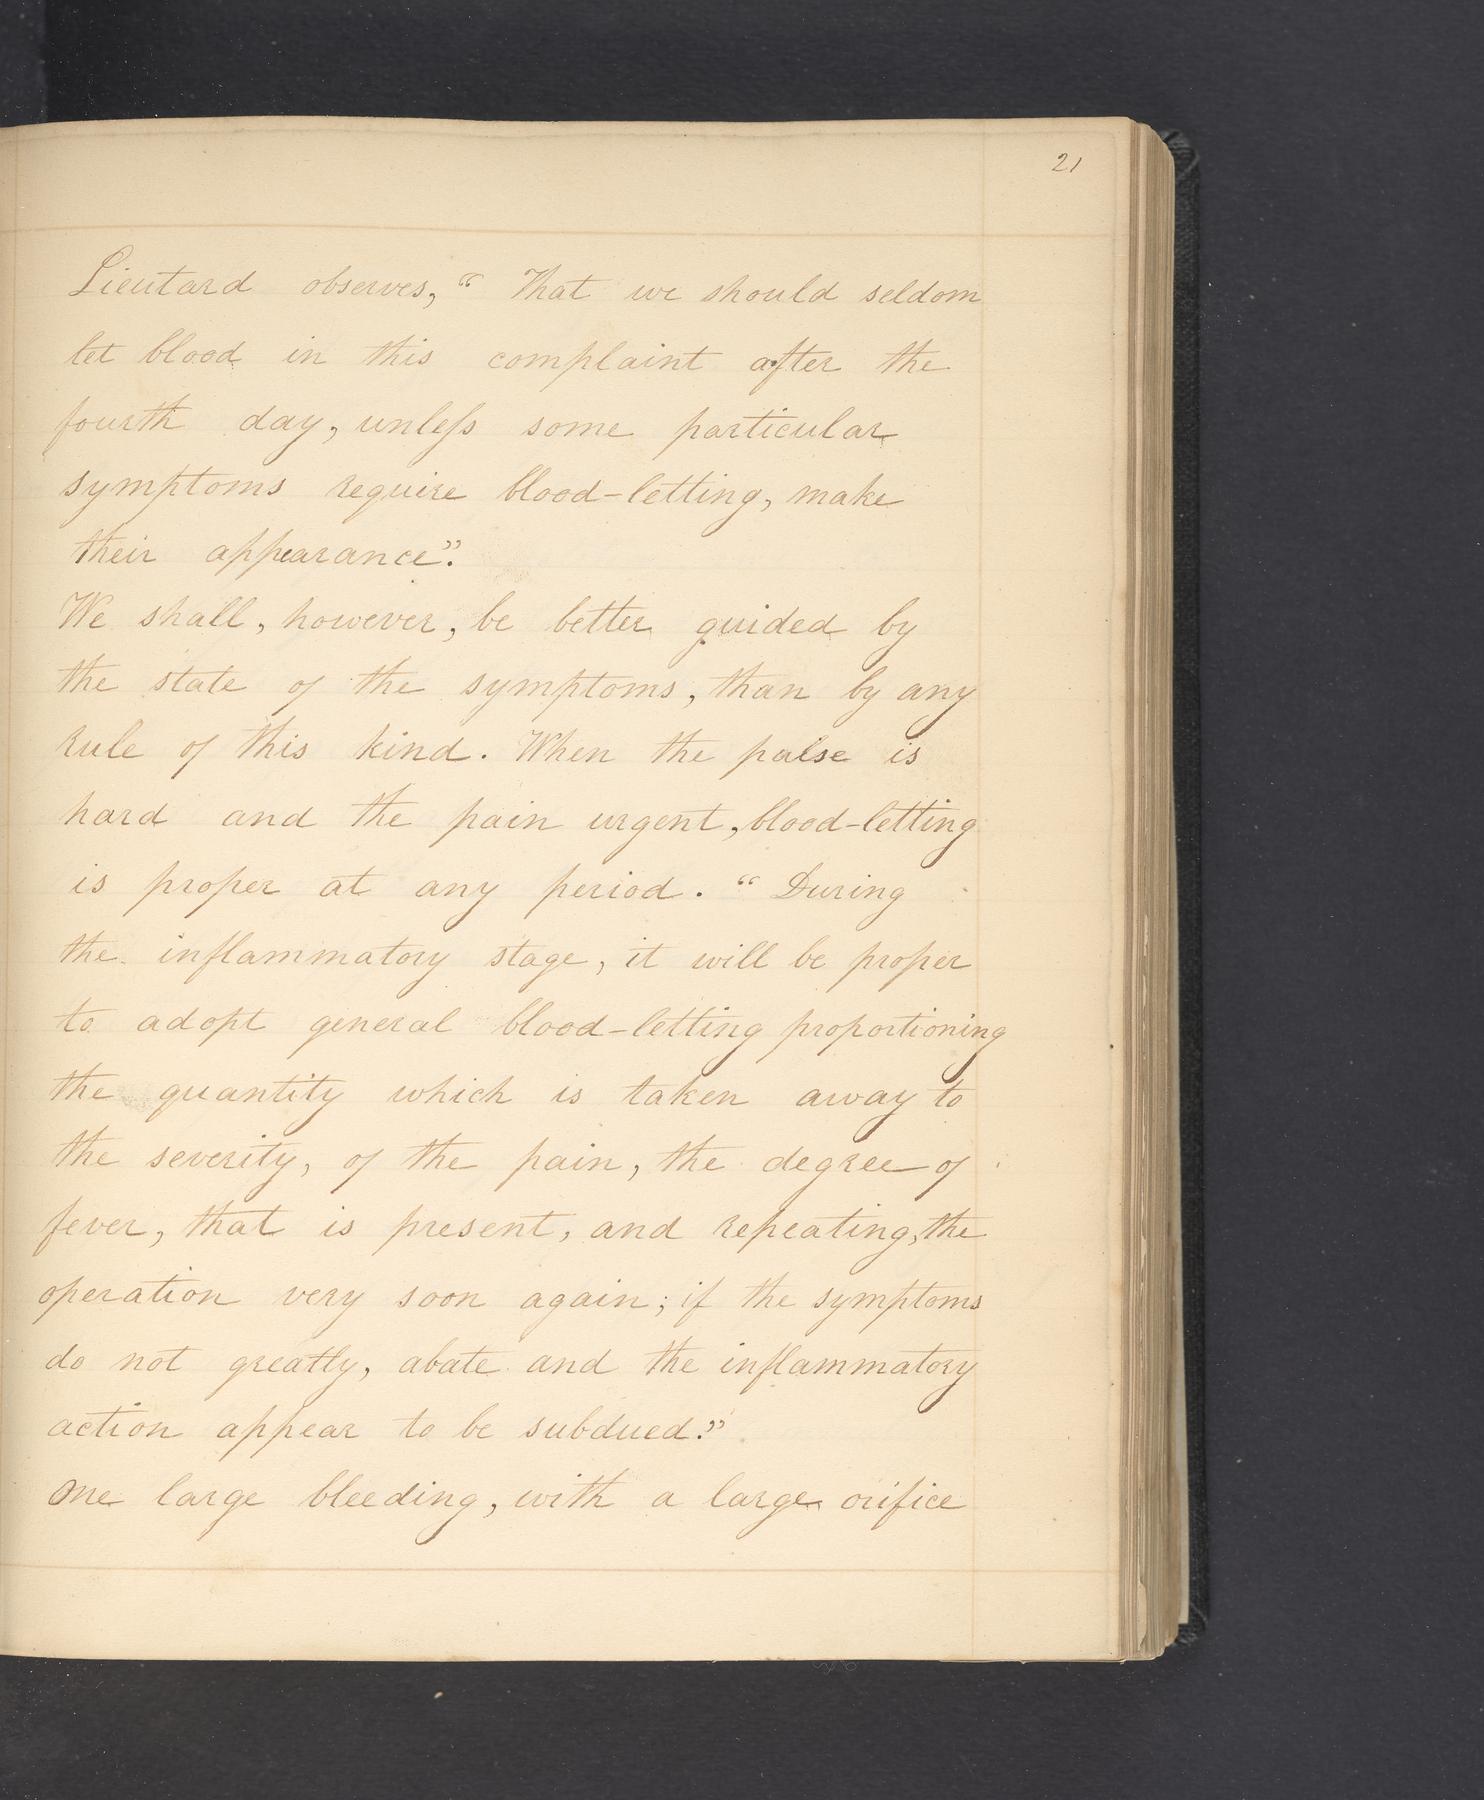 21
Lieutard observes, " That we should seldom
let blood in this complaint after the
fourth day, unleſs some particular
symptoms require blood-letting, make
their appearance".
We shall, however, be better guided by
the state of the symptoms, than by any
rule of this kind. When the pulse is
hard and the pain urgent, blood-letting
is proper at any period. " During
the inflammatory stage, it will be proper
to adopt general blood-letting proportioning
the quantity which is taken away to
the severity, of the pain, the degree of
fever, that is present, and repeating, the
operation very soon again; if the symptoms
do not greatly, abate and the inflammatory
action appear to be subdued."
One large bleeding, with a large orifice